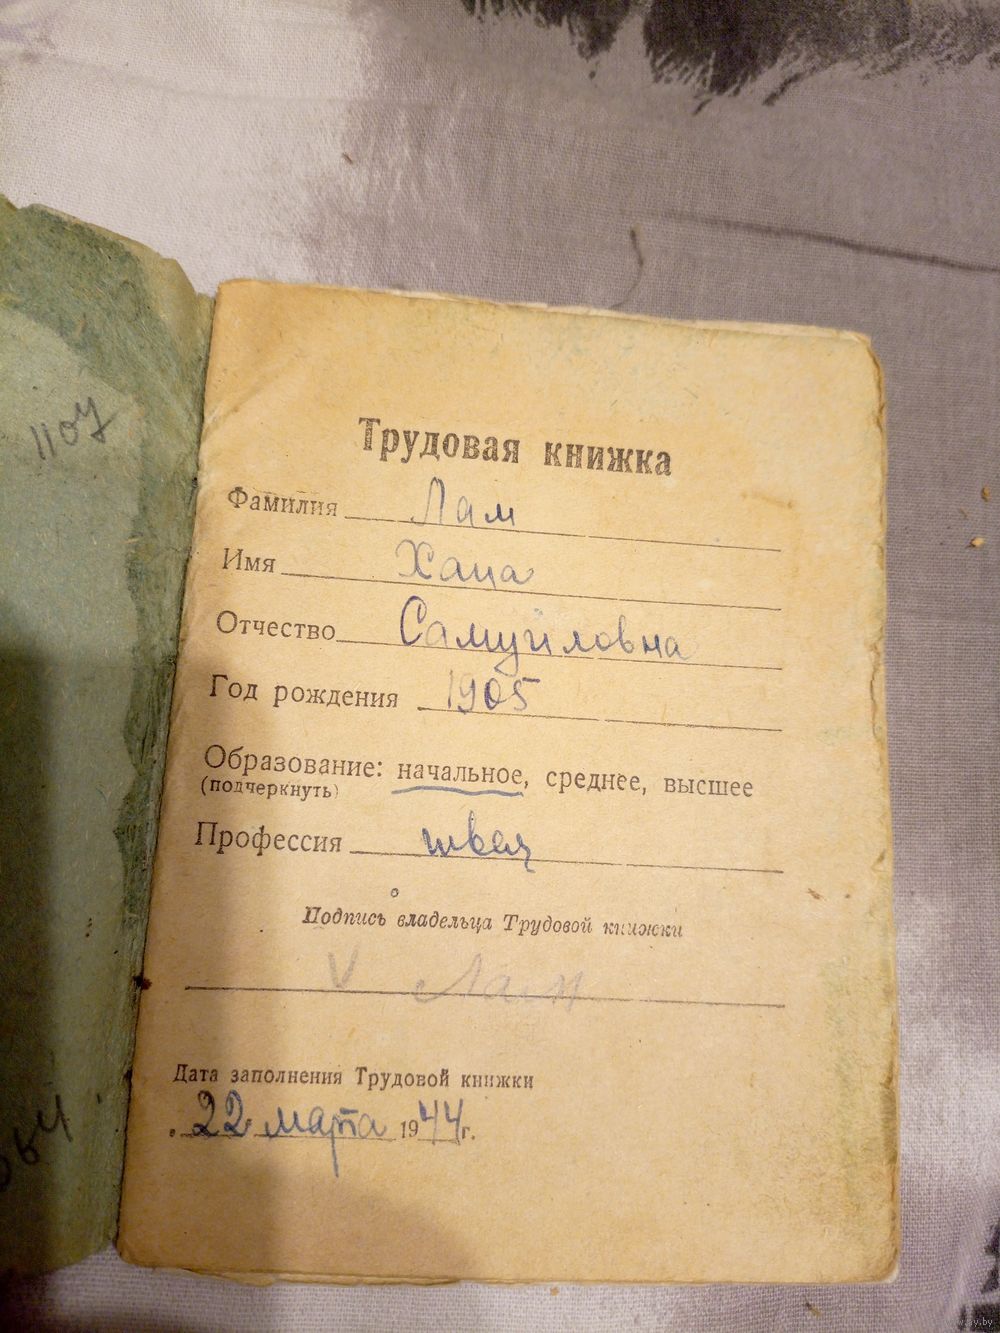 1107
Трудовая книжка
Фамилия Лам
Имя Хаца
Отчество Самуиловна
Год рождения 1905
Образование: начальное, среднее, высшее
(подчеркнуть)
Профессия швея
Подпись владельца Трудовой книжки
V Лам
Дата заполнения Трудовой книжки
22 марта 1944г.